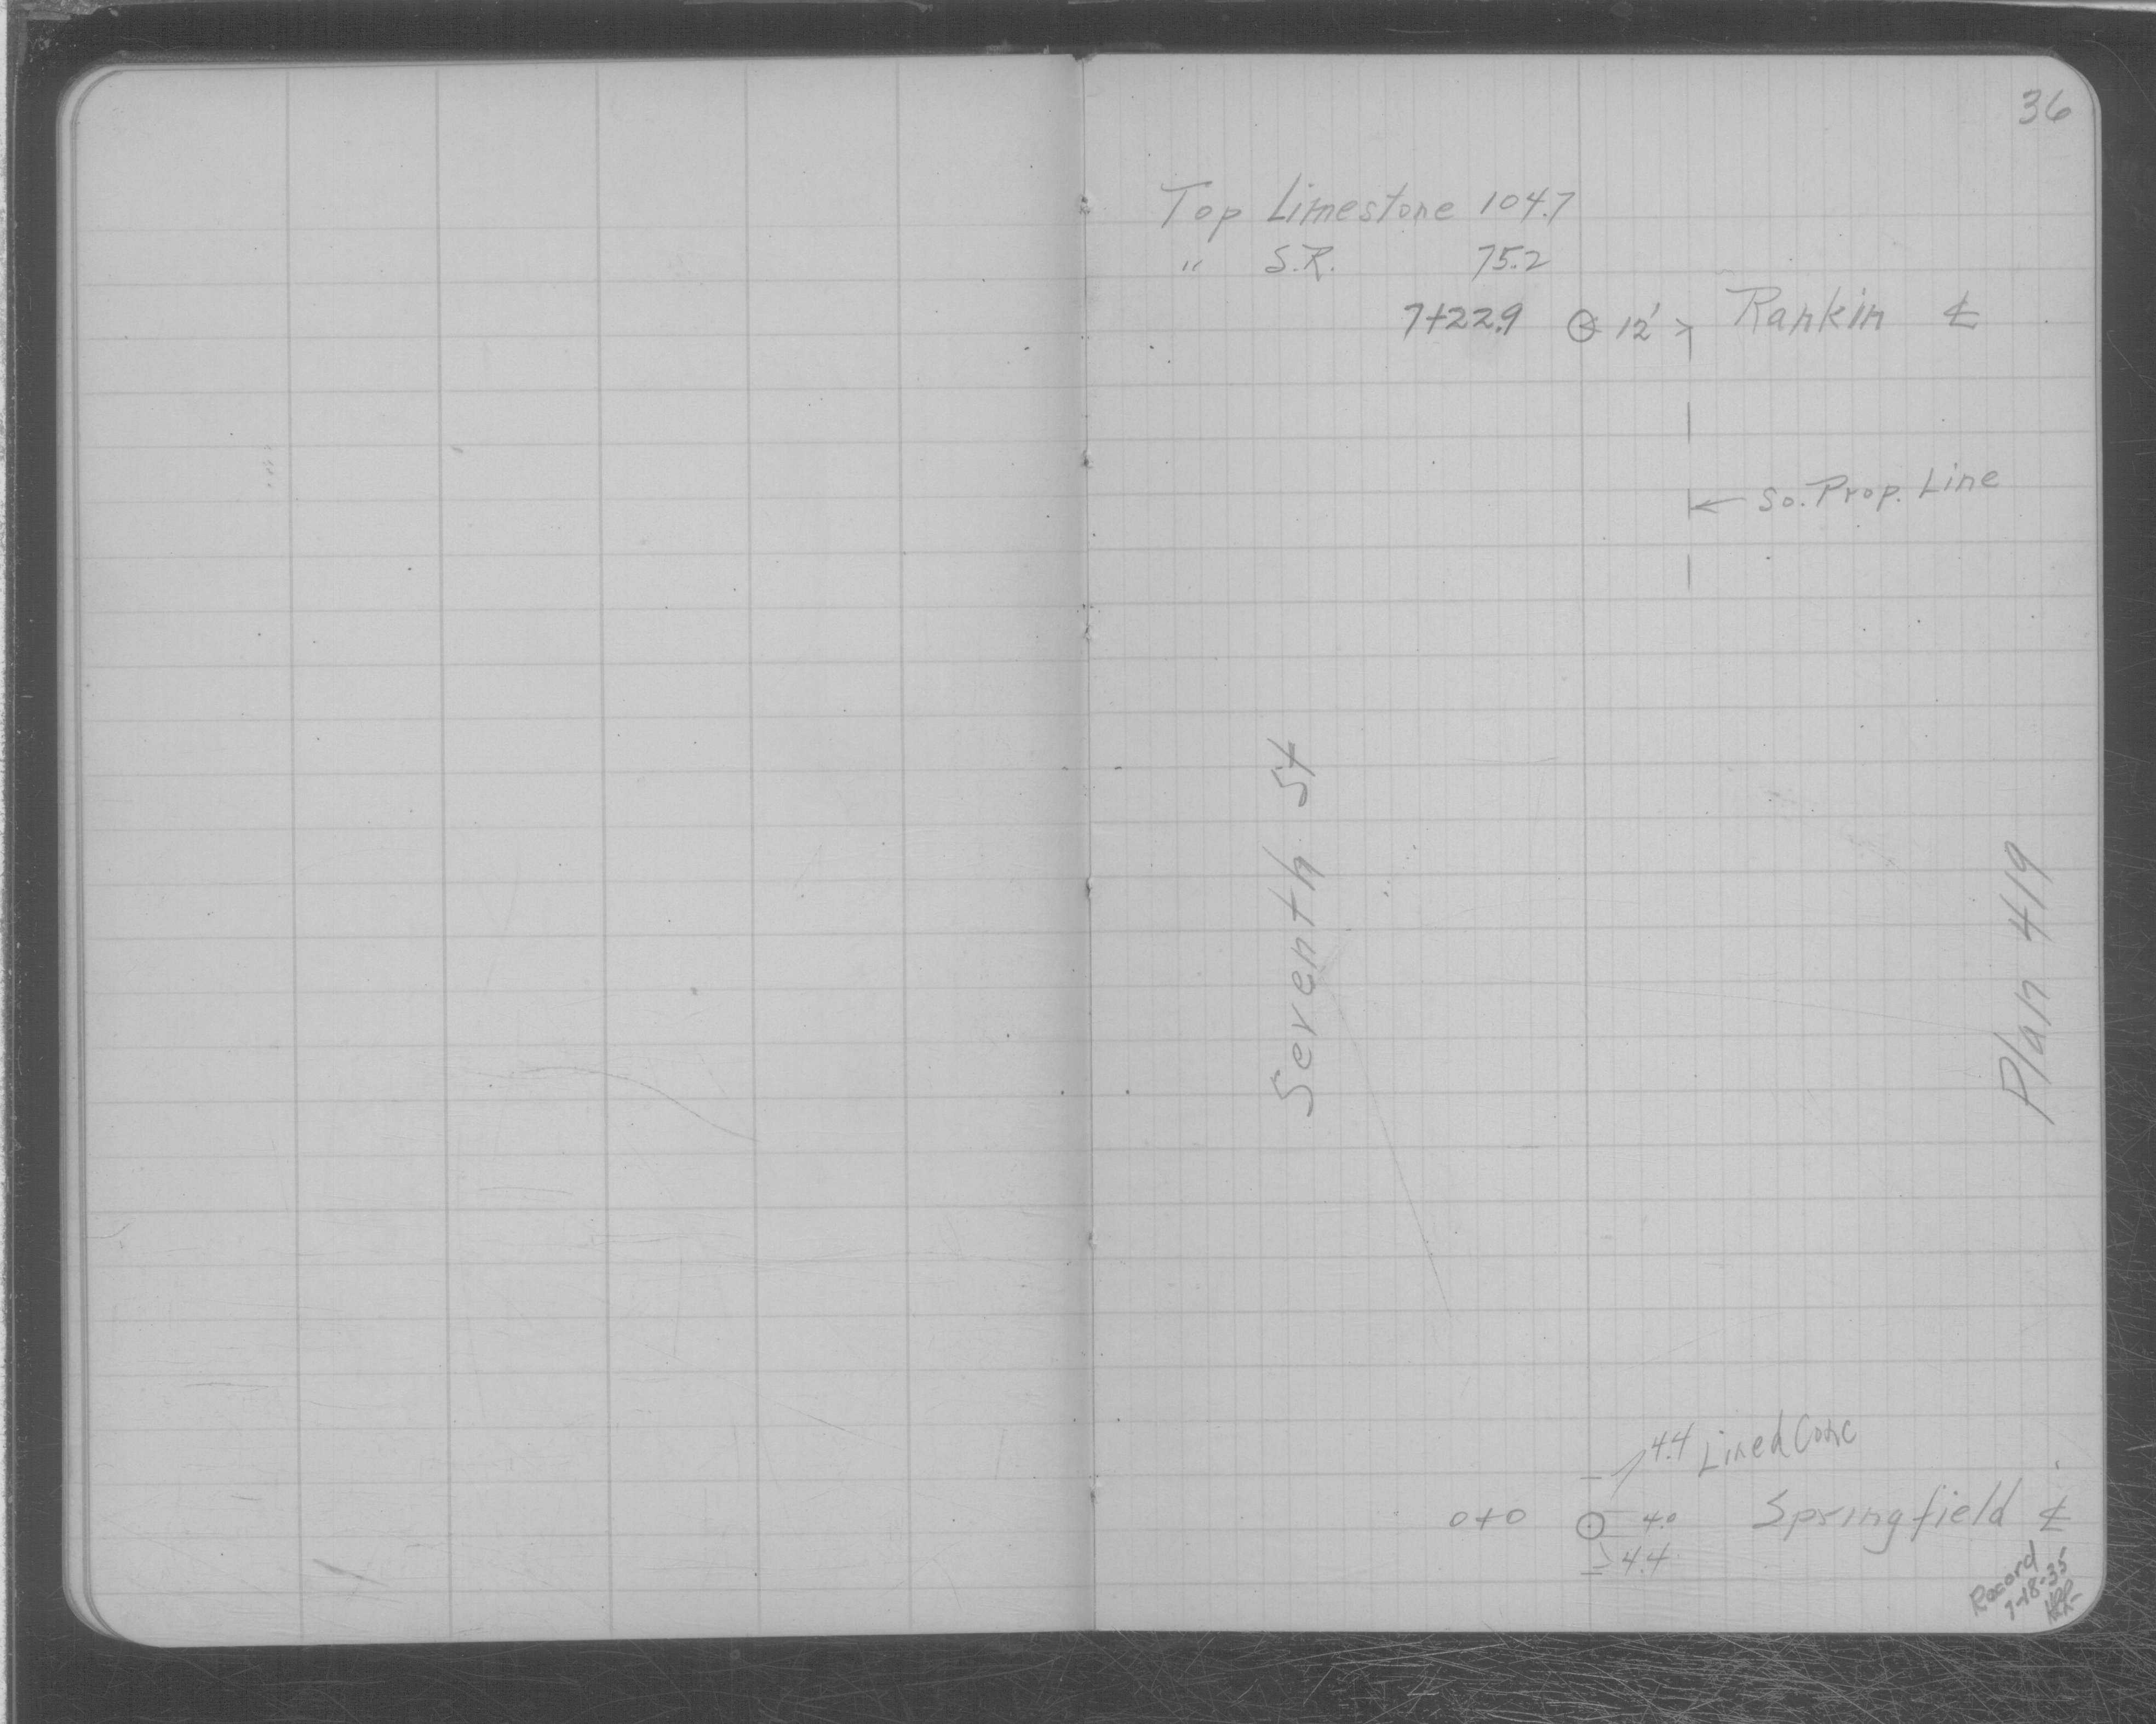 36
Top Limestone 104.7
" S.R. 75.2
7+22.9 12' Rankin ℄
So. Prop. Line
Seventh St
Plan 419
4.4 Lined Conc
0+0 4.0 Springfield ℄
4.4
Record
7-18-35